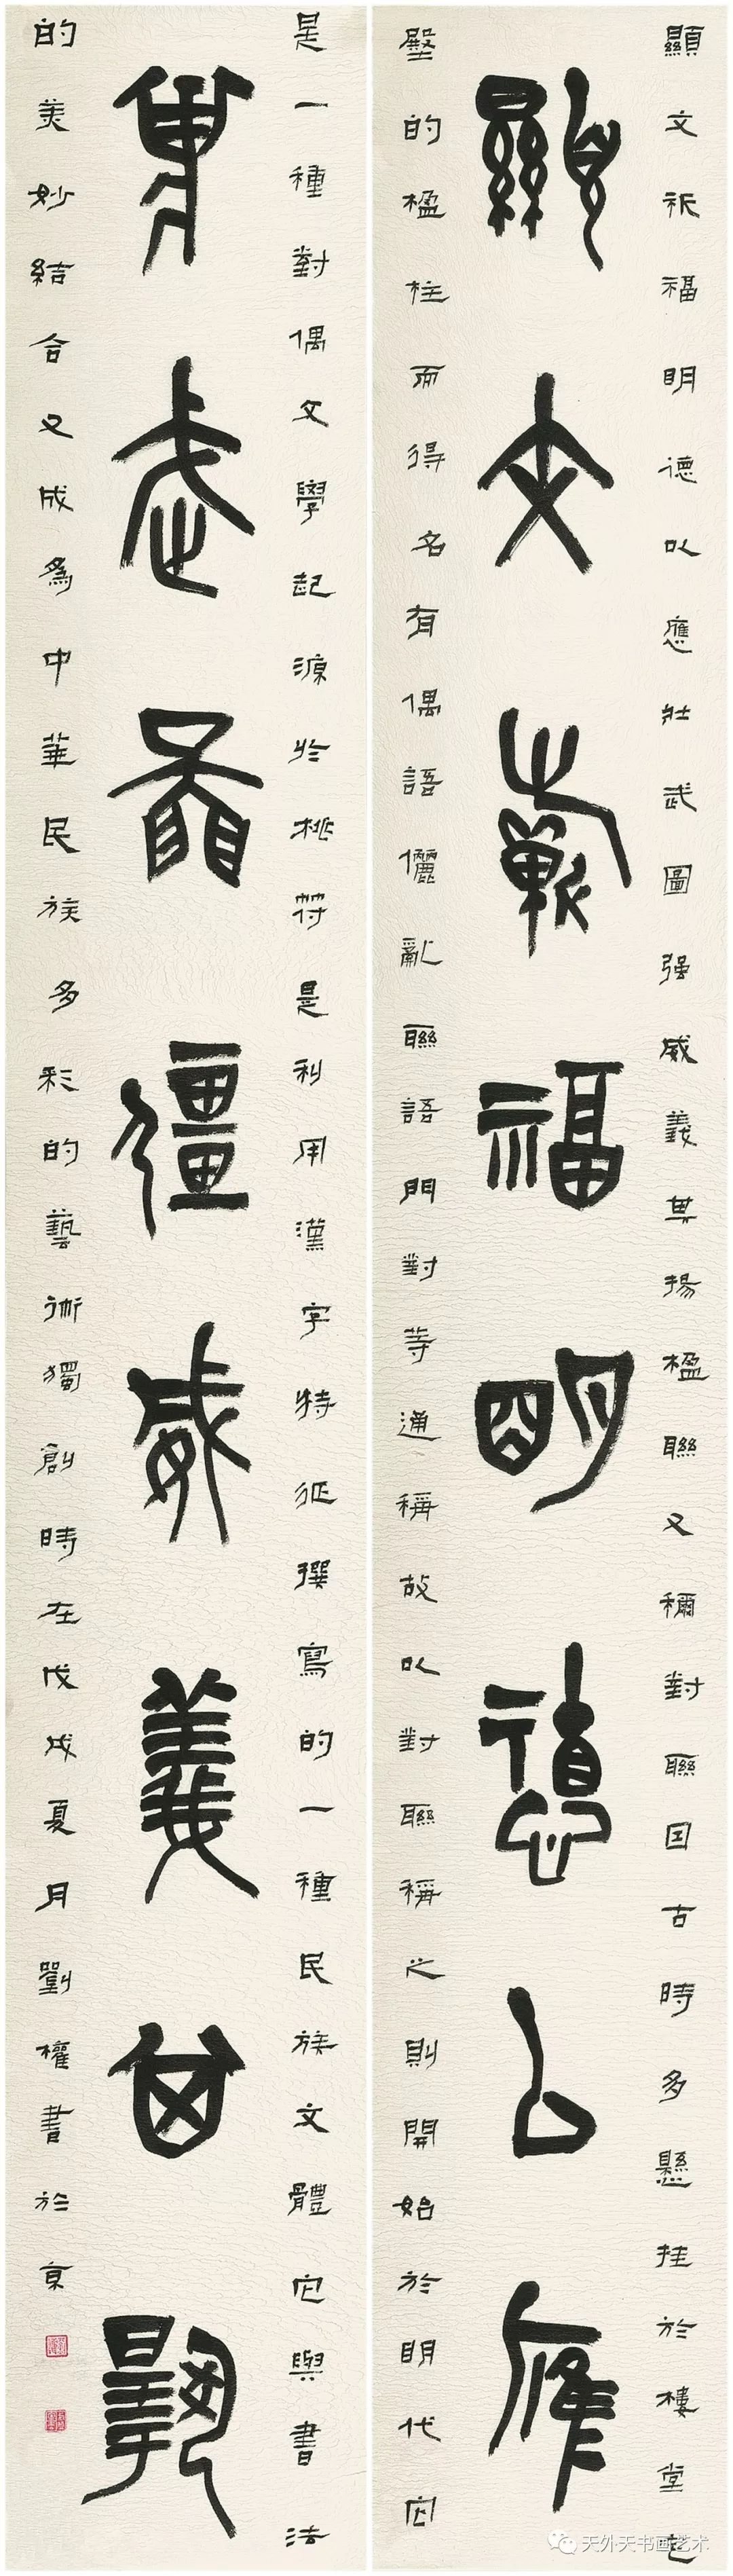 顯文祈福明德以應壯武圖强威義其揚楹聯又稱對聯因古時多懸挂於樓堂宅
顯文祈福明德以應
殿的楹柱而得名有偶語儷辭聯語門對等通稱故以對聯稱之則開始於明代它
是一種對偶文學起源於桃符是利用漢字特征撰寫的一種民族文體它與書法
壯武圖彊威義其揚
的美妙結合又成爲中華民族多彩的藝術獨創時在戊戌夏月劉權書於京
天外天书画艺术